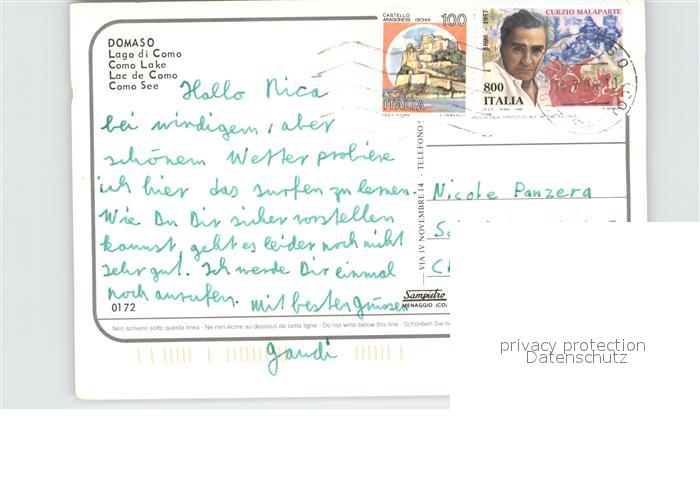 DOMASO
Lago di Como
Como Lake
Lac de Como
Como See
CASTELLO
ARAGONESE ISCHIA
100
ITALIA
1898 - 1957
CURZIO MALAPARTE
800
ITALIA
Hallo Nica
bei windigem, aber
schönem Wetter probiere
ich hier das surfen zu lernen.
Wie Du Dir sicher vorstellen
kannst, geht es leider noch nicht
sehr gut. Ich werde Dir einmal
noch anrufen. mit besten grüssen
gaudi
VIA IV NOVEMBRE 14 - TELEFONO
Nicole Panzera
Sampietro
MENAGGIO (CO)
0172
Non scrivere sotto questa linea - Ne rien écrire au dessous de cette ligne - Do not write below this line - Schreiben Sie
privacy protection
Datenschutz